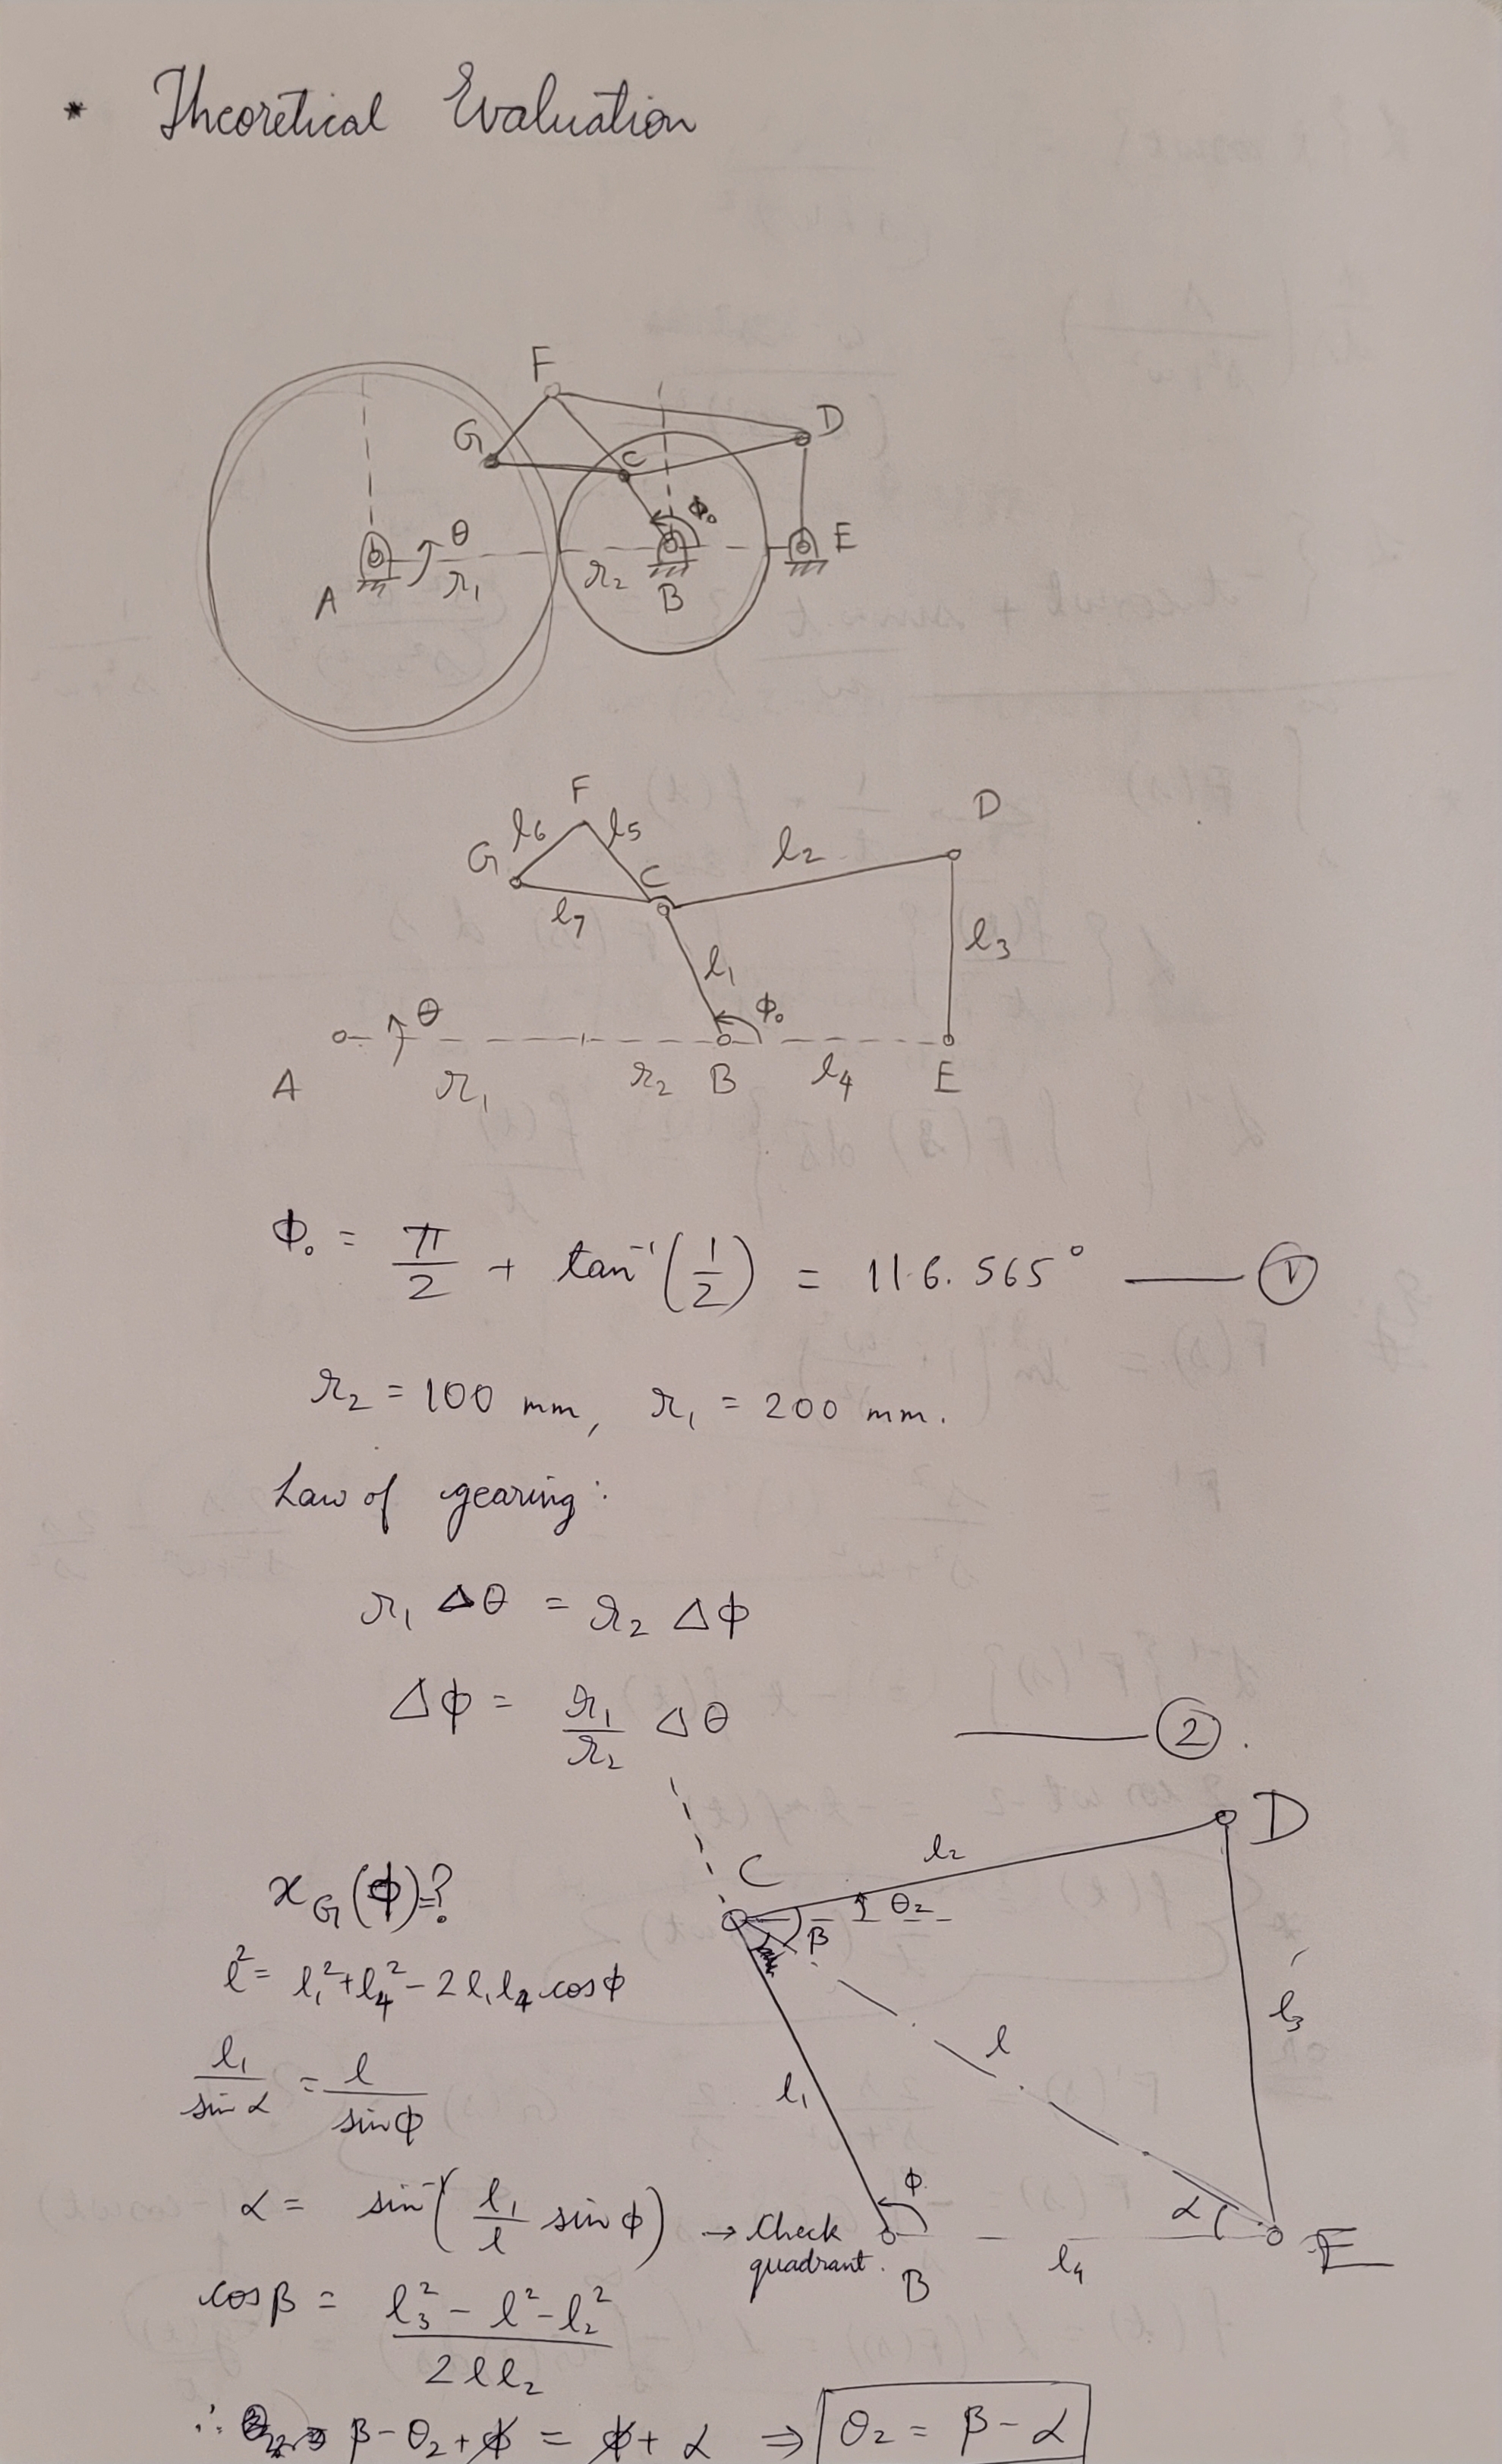 * Theoretical Evaluation
F
G
C
D
ϕ₀
E
A
θ
r₁
r₂
B
F
D
l₆
l₅
G
C
l₂
l₇
l₃
l₁
θ
ϕ₀
A
r₁
r₂
B
l₄
E
ϕ₀ = π/2 + tan⁻¹(1/2) = 116.565° —— ①
r₂ = 100 mm, r₁ = 200 mm.
Law of gearing:
r₁ Δθ = r₂ Δϕ
Δϕ = r₁/r₂ Δθ —— ②.
D
l₂
C
x_G(ϕ)=?
θ₂
β
l² = l₁² + l₄² - 2l₁l₄ cosϕ
l₃
l
l₁/sin α = l/sinϕ
l₁
α = sin⁻¹(l₁/l sinϕ) → Check quadrant.
ϕ
α
B
l₄
E
cosβ = l₃² - l² - l₂² / 2ll₂
∴ β - θ₂ + ϕ = ϕ + α ⇒ θ₂ = β - α